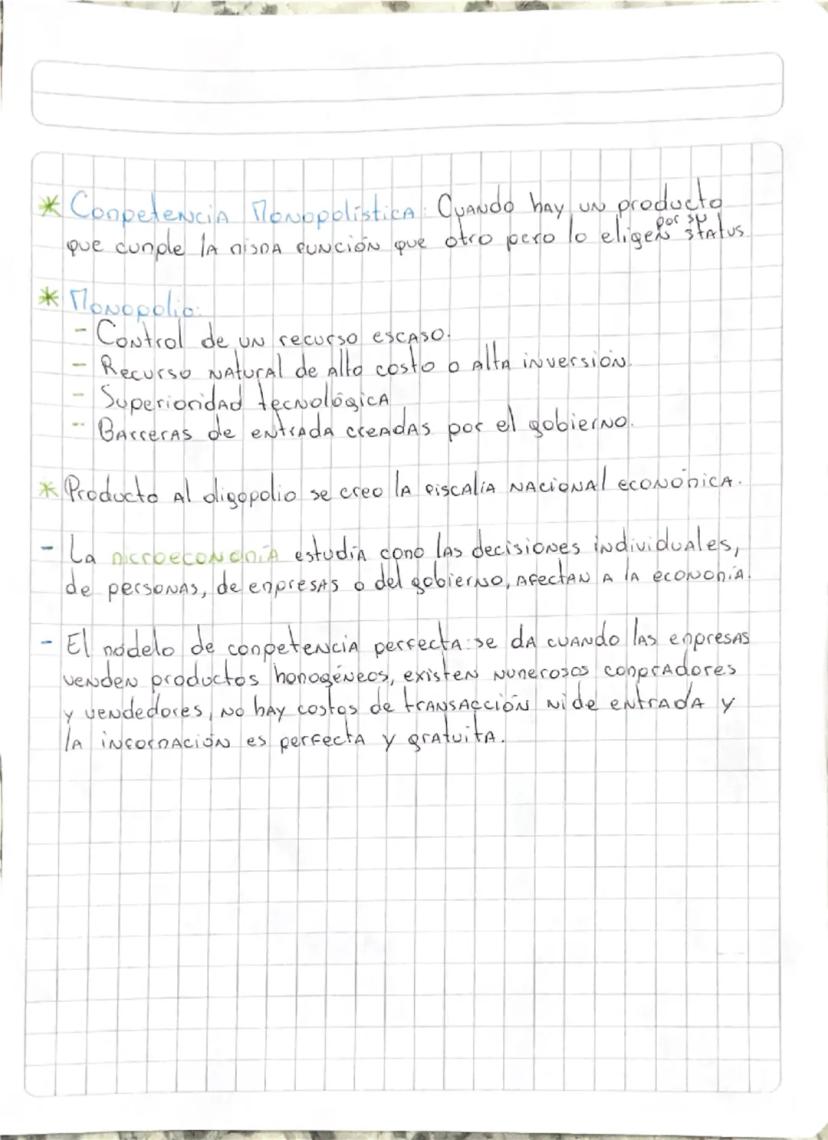 * Competencia Monopolística: Cuando hay un producto
que cumple la misma función que otro pero lo eligen por su status
* Monopolio:
- Control de un recurso escaso.
- Recurso natural de alto costo o alta inversión.
- Superioridad tecnológica
- Barreras de entrada creadas por el gobierno.
* Producto al oligopolio se creo la fiscalía nacional económica.
- La microeconomía estudia como las decisiones individuales,
de personas, de empresas o del gobierno, afectan a la economía.
- El modelo de competencia perfecta: se da cuando las empresas
venden productos homogéneos, existen numerosos compradores
y vendedores, no hay costos de transacción ni de entrada y
la información es perfecta y gratuita.